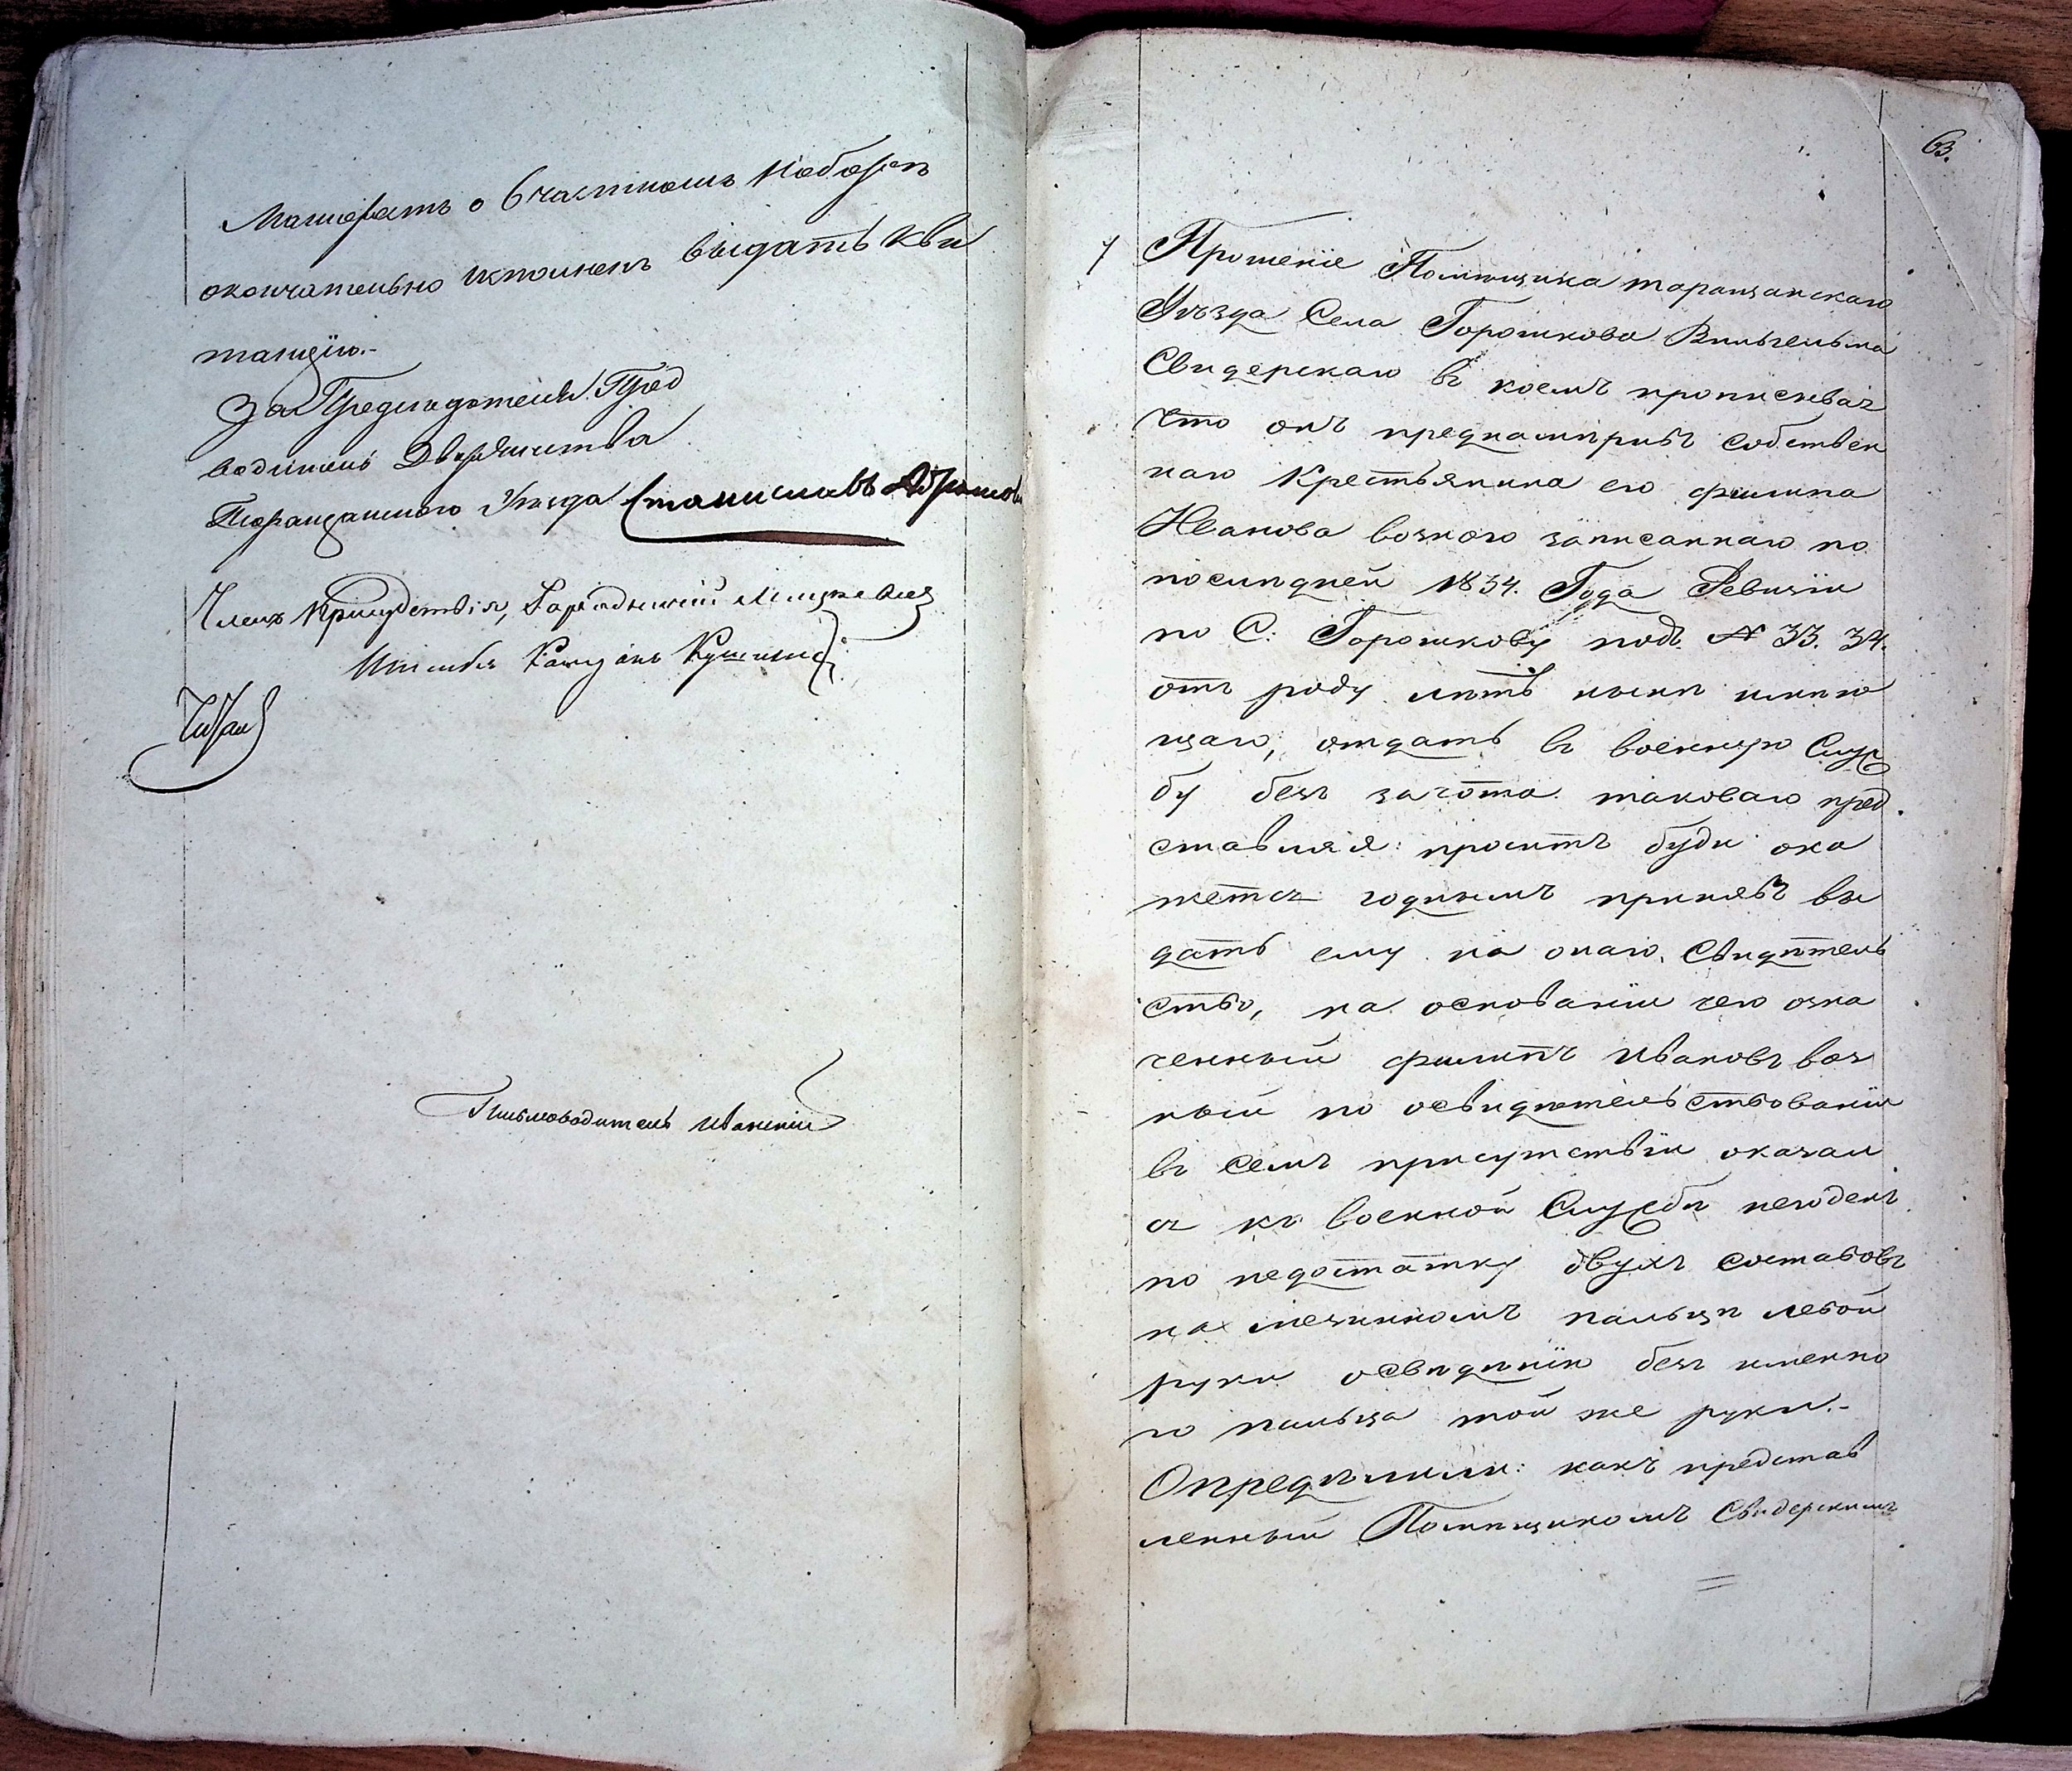 Манифестъ о 6 частномъ наборѣ
окончательно исполненъ выдать кви
танцію.-
За Предсѣдателя Пред
водитель Дворянства
Таращанского Уѣзда Станиславъ
Членъ Присудствія, Городничій
Штабъ
Письмоводитель Иванскій
63.
7 Прошеніе Помѣщика таращанскаго
Уѣзда Села Горошкова Вильгельма
Свидерскаго въ коемъ прописывая
что онъ преднамѣривъ собствен
наго Крестьянина его филипа
Иванова возного записаннаго по
послѣдней 1834. Года Ревизіи
по С: Горошкову подъ № 33. 34.
отъ роду лѣтъ нынѣ имѣю
щаго, отдать въ военную Служ
бу безъ зачота таковаго пред
ставляя: проситъ буди ока
жется годнымъ принявъ вы
дать ему на онаго, Свидѣтель
ство, на основаніи чего озна
ченный филипъ Ивановъ воз
ный по освидѣтельствованіи
въ семъ присутствіи оказал
ся къ военной Службѣ негоденъ
по недостатку двухъ составовъ
на мезинномъ пальцѣ левой
руки безъ именно
го пальца той же руки.-
Опредѣлили: какъ представ
ленный Помѣщикомъ Свидерскимъ